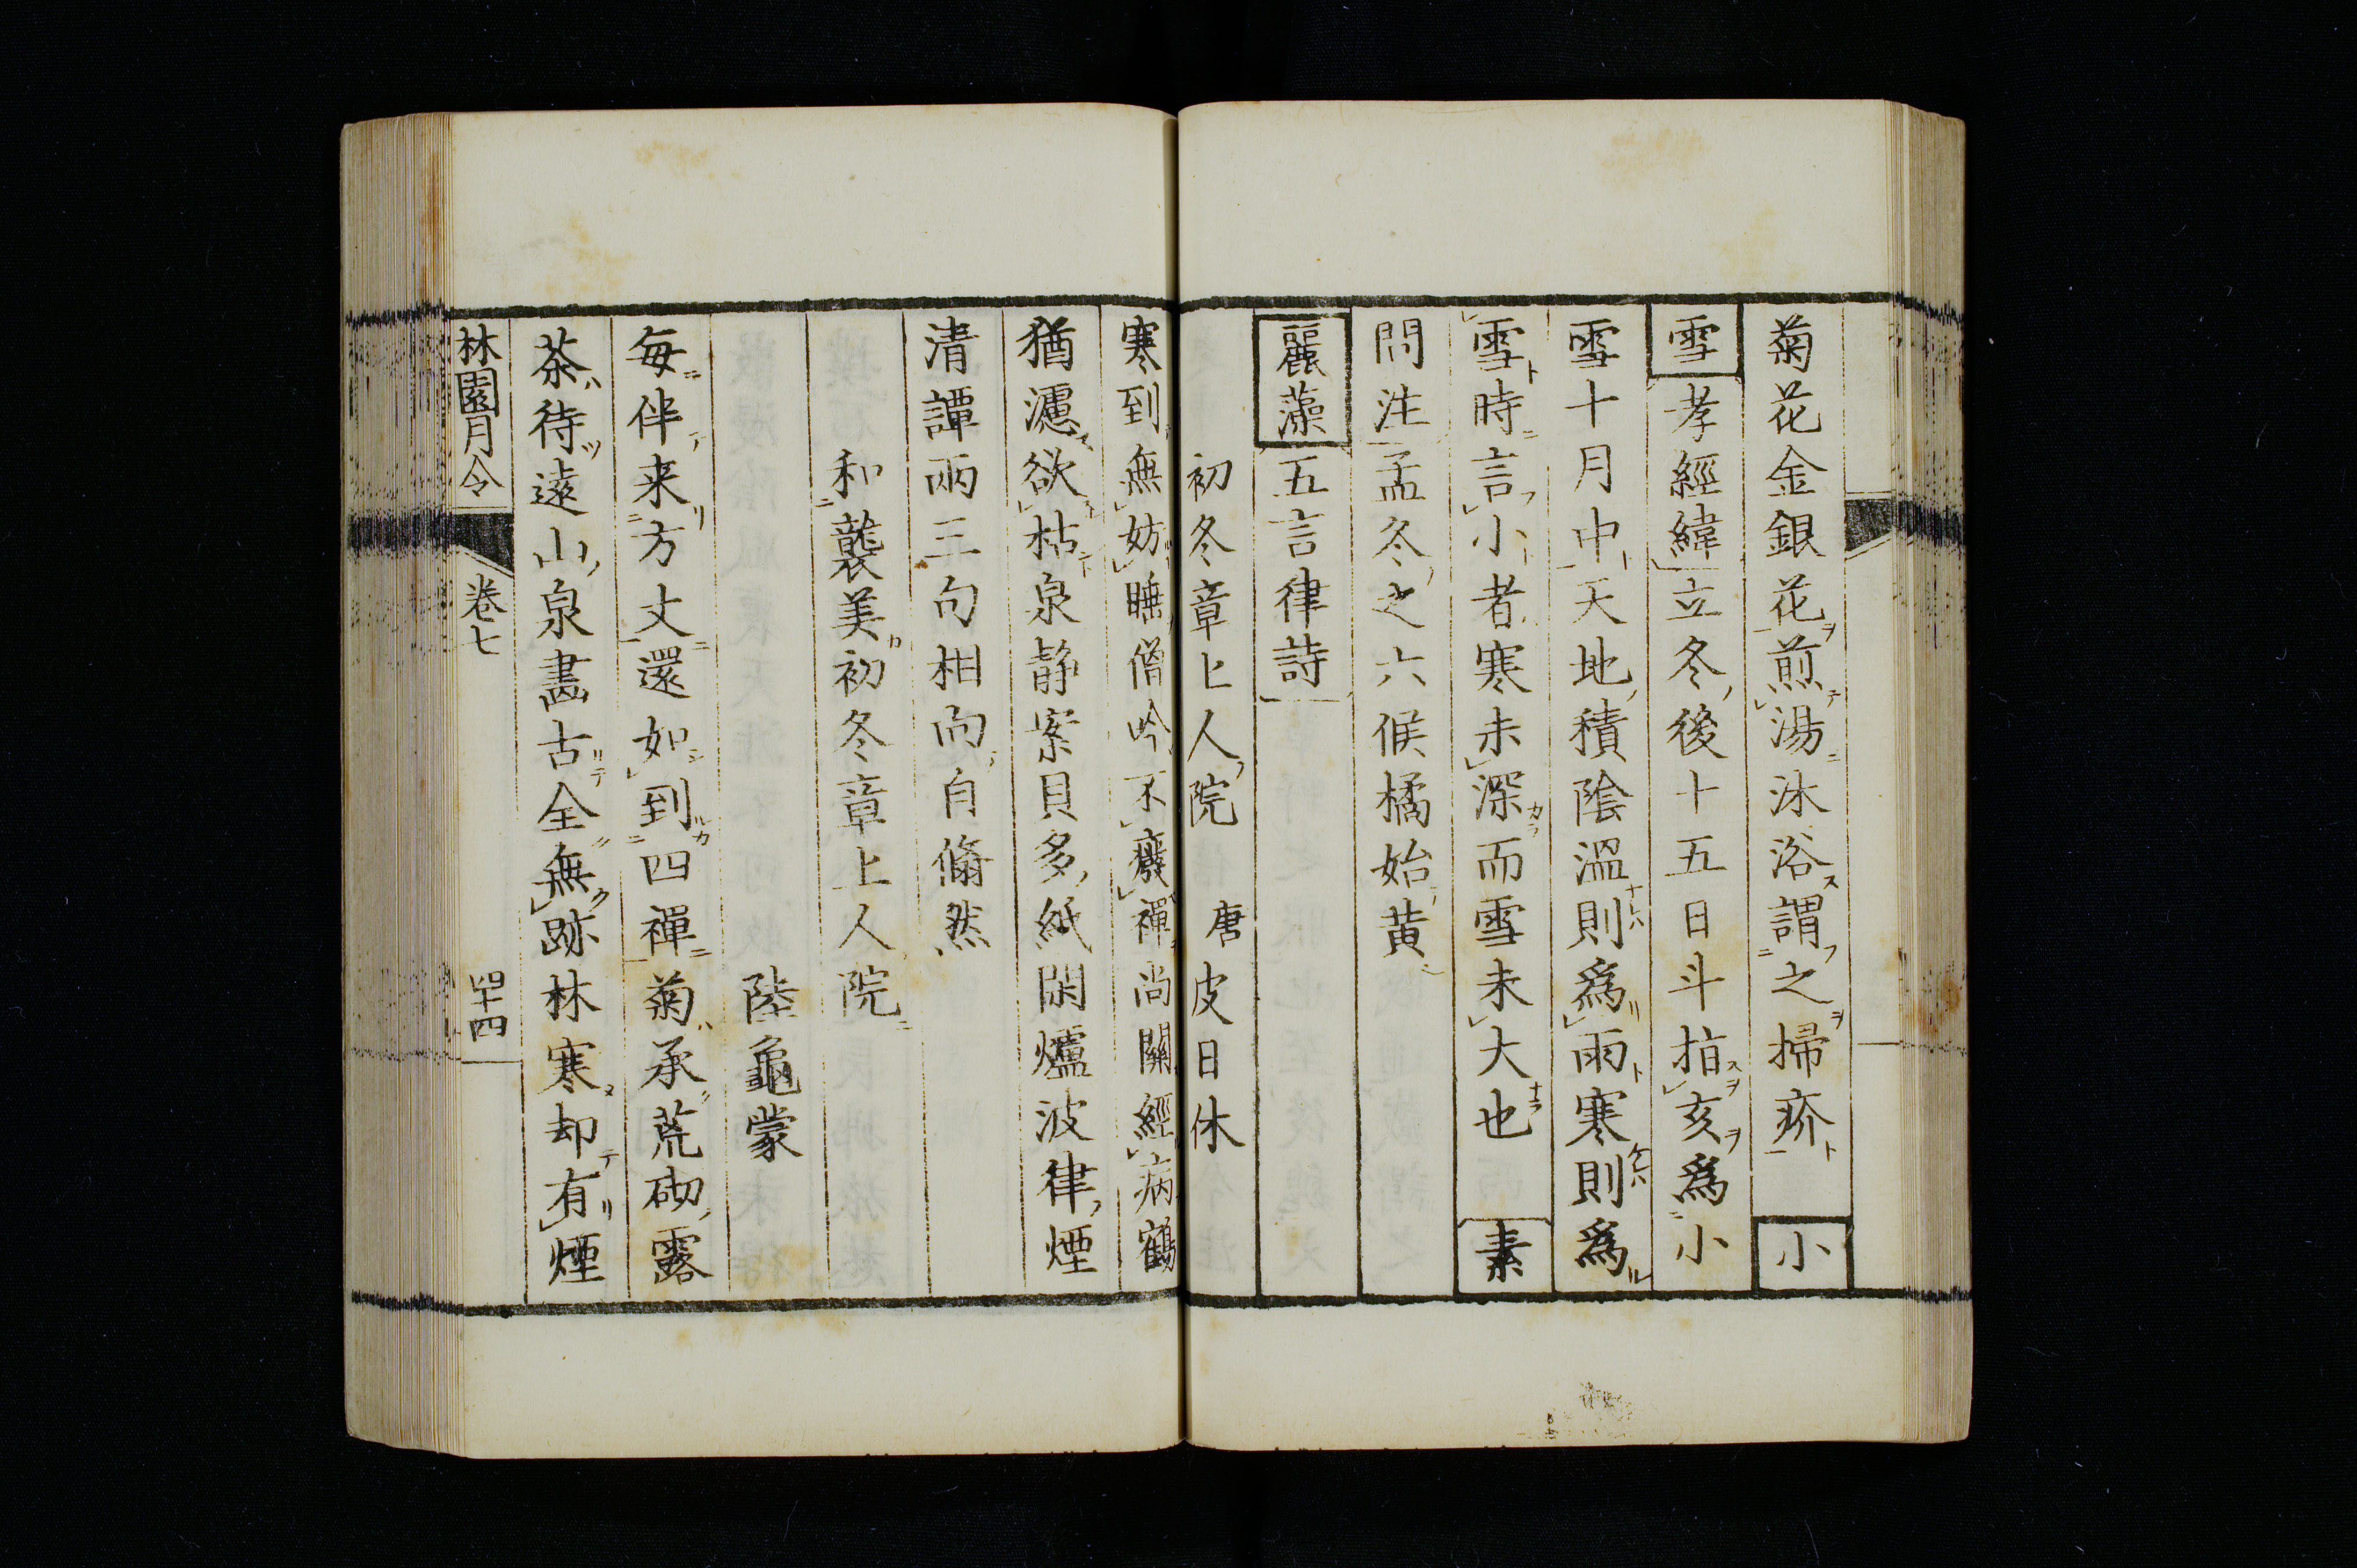 菊花金銀花煎湯沐浴謂之掃疥 小
雪 孝經緯立冬後十五日斗指亥爲小
雪十月中天地積陰溫則爲雨寒則爲
雪時言小者寒未深而雪未大也 素
問注孟冬之六候橘始黄
麗藻 五言律詩
初冬章上人院 唐皮日休
寒到無妨睡僧吟不癈禪尚關經病鶴
猶濾欲枯泉静案貝多紙閑爐波律煙
清譚兩三句相向自翛然
和襲美初冬章上人院
陸龜蒙
每伴来方丈還如到四禪菊承荒砌露
茶待遠山泉畵古全無跡林寒却有煙
林園月令 卷七 四十四